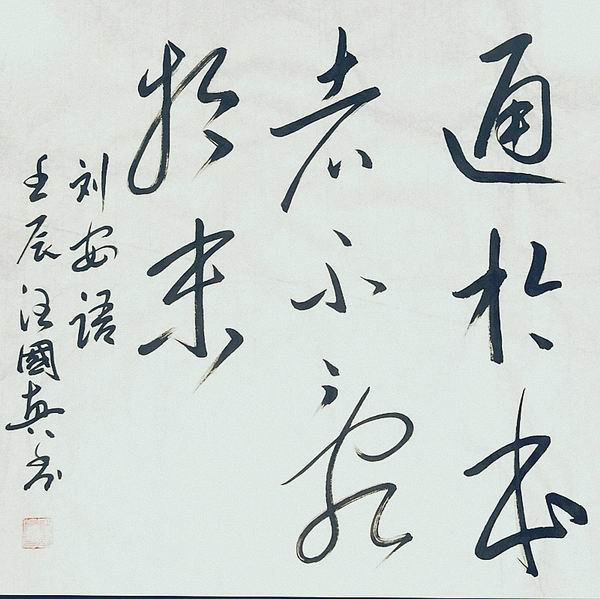 通於本
者不亂
於末
刘安語
壬辰汪國真书